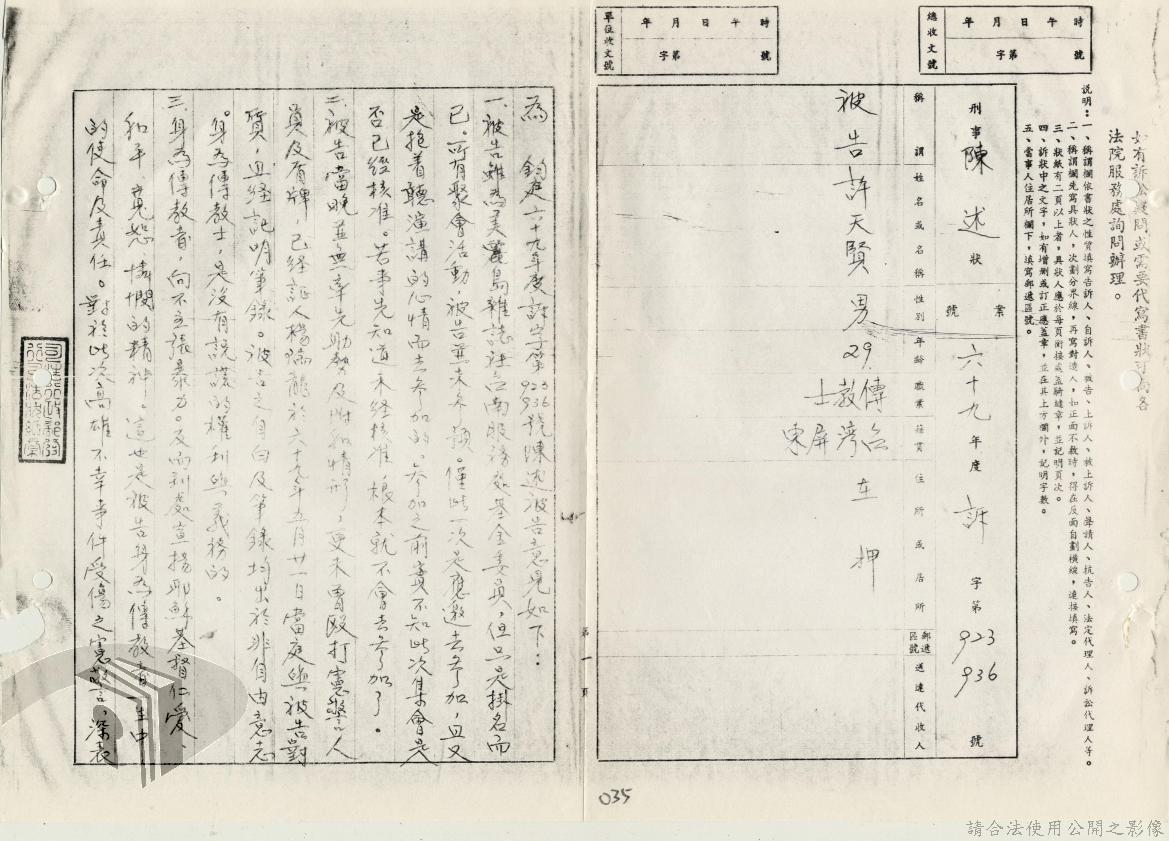 如有訴訟疑問或需要代寫書狀可向各
法院服務處詢問辦理。
說明：一、稱謂欄依書狀之性質填寫告訴人、自訴人、被告、上訴人、被上訴人、聲請人、抗告人、法定代理人、訴訟代理人等。
二、稱謂欄先寫具狀人，次劃分界線，再寫對造人，如正面不敷時，得在反面自劃橫線，連接填寫。
三、狀紙有二頁以上者，具狀人應於每頁銜接處蓋騎縫章，並記明頁次。
四、訴狀中之文字，如有增刪或訂正應蓋章，並在其上方欄外，記明字數。
五、當事人住居所欄下，填寫郵遞區號。
總收文號
年 月 日 午 時
字第 號
單位收文號
年 月 日 午 時
字第 號
刑事陳述狀
案號
六十九年度訴字第923 936號
稱謂
姓名或名稱
性別
年齡
職業
籍貫
住所或居所
郵遞區號
送達代收人
被告許天賢 男 29.
傳教士
台灣屏東
在押
第一頁
為 鈞庭六十九年度訴字第923 936號陳述被告意見如下：
一、被告雖為美麗島雜誌社台南服務處基金委員，但只是掛名而
已。所有聚會活動，被告並未參預。僅此一次是應邀去參加，且又
是抱着聽演講的心情而去參加的。參加之前實不知此次集會是
否已經核准。若事先知道未經核准，根本就不會去參加了。
二、被告當晚並無率先助勢及附和情形，更未曾毆打憲警人
員及盾牌，已經証人楊瑞龍於六十九年五月廿一日當庭與被告對
質，且經記明筆錄。被告之自白及筆錄均出於非自由意志
。身為傳教士，是沒有說謊的權利與義務的。
三、身為傳教者，向不主張暴力。反而到處宣揚耶穌基督仁愛、
和平、寬恕、憐憫的精神。這也是被告身為傳教者一生中
的使命及責任。對於此次高雄不幸事件受傷之憲警，深表
035
請合法使用公開之影像